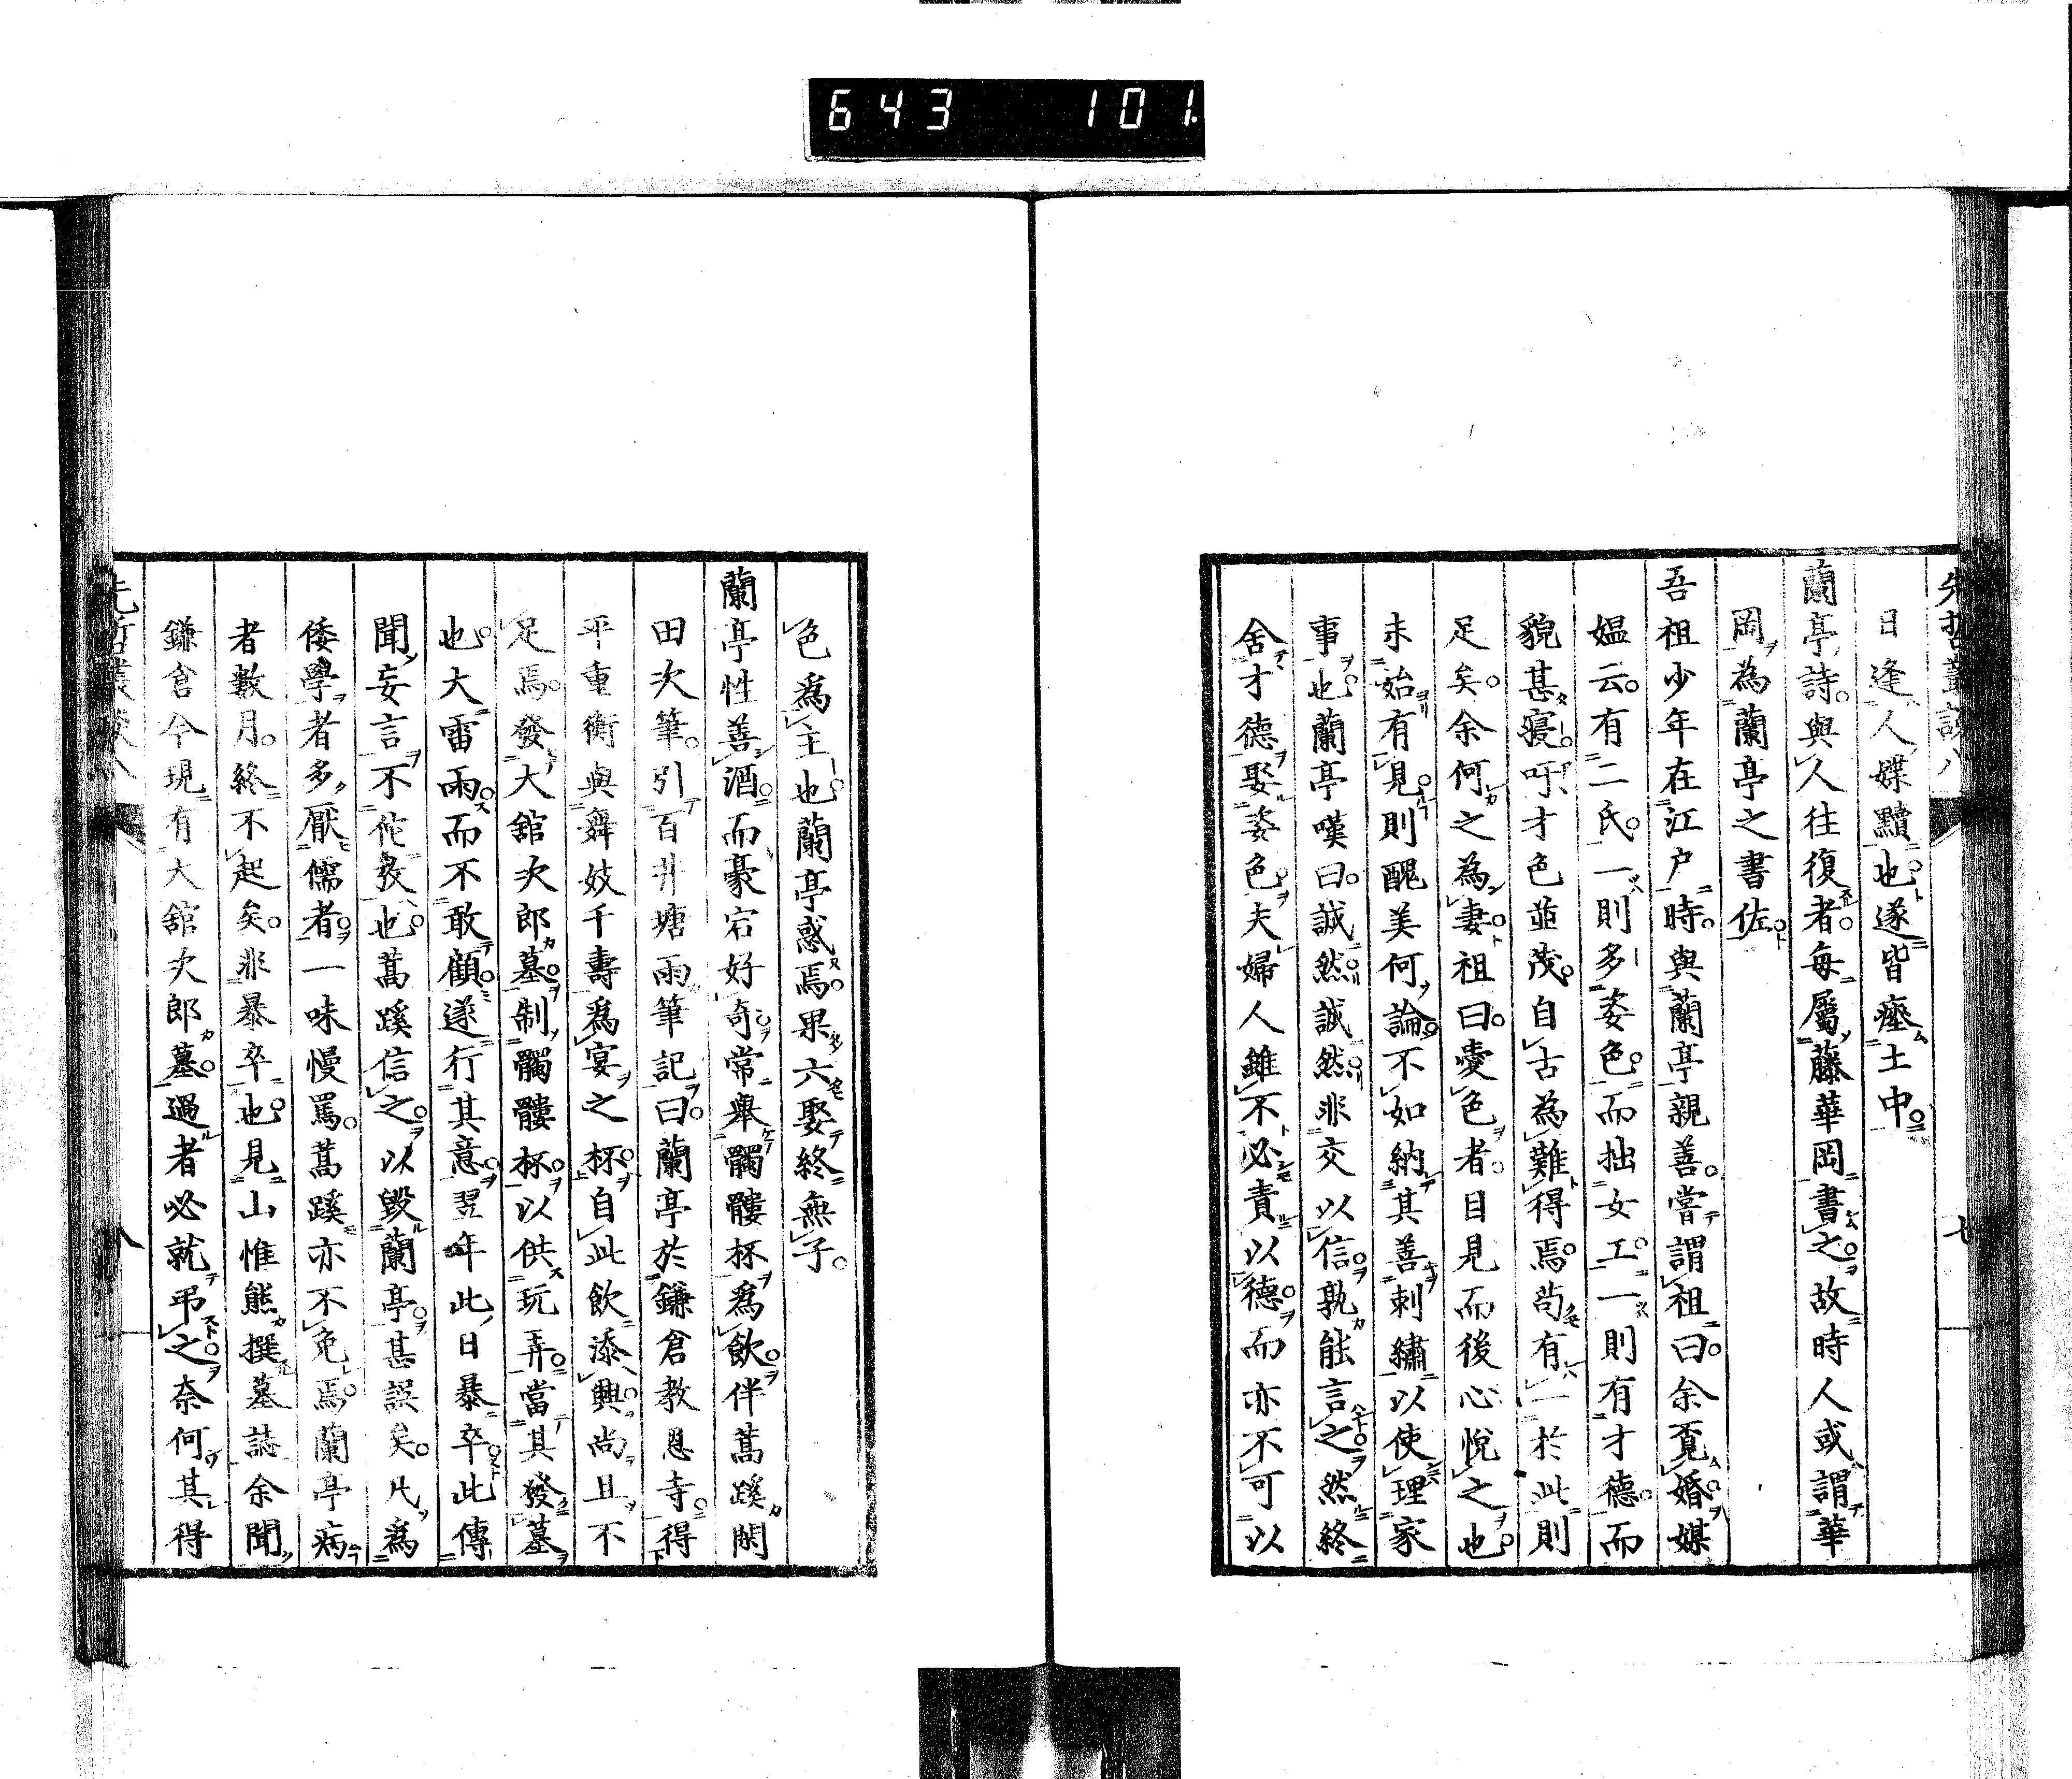 643 101.
先哲叢談八
七
日逢人媟黷也遂皆瘞土中。
蘭亭詩。與人往復者。毎屬藤華岡書之。故時人或謂華
岡為蘭亭之書佐。
吾祖少年在江戸時。與蘭亭親善。嘗謂祖曰。余覔婚媒
媼云。有二氏。一則多姿色。而拙女工。一則有才德。而
貌甚寝。吁才色並茂。自古為難得焉。苟有一於此則
足矣。余何之為妻。祖曰。愛色者。目見而後心悅之也。
未始有見則醜美何論。不如納其善刺繡以使理家
事也。蘭亭嘆曰。誠然。誠然。非交以信。孰能言之。然終
舍才德娶姿色。夫婦人雖不必責以德。而亦不可以
色為主也。蘭亭惑焉。果六娶終無子。
蘭亭性善酒。而豪宕好奇。常舉髑髏杯為飲。伴蒿蹊閑
田次筆。引百井塘雨筆記曰。蘭亭於鎌倉教恩寺。得
平重衡與舞妓千壽為宴之杯。自此飲添興。尚且不
足焉。發大舘次郎墓。制髑髏杯。以供玩弄。當其發墓
也。大雷雨。而不敢顧。遂行其意。翌年此日暴卒。此傳
聞妄言。不佗㪅也。蒿蹊信之。以毀蘭亭。甚誤矣。凡為
倭學者多厭儒者。一味慢罵。蒿蹊亦不免焉。蘭亭病
者數月。終不起矣。非暴卒也。見山惟熊撰墓誌。余聞
鎌倉今現有大舘次郎墓。過者必就弔之。奈何其得
先哲叢談八
八